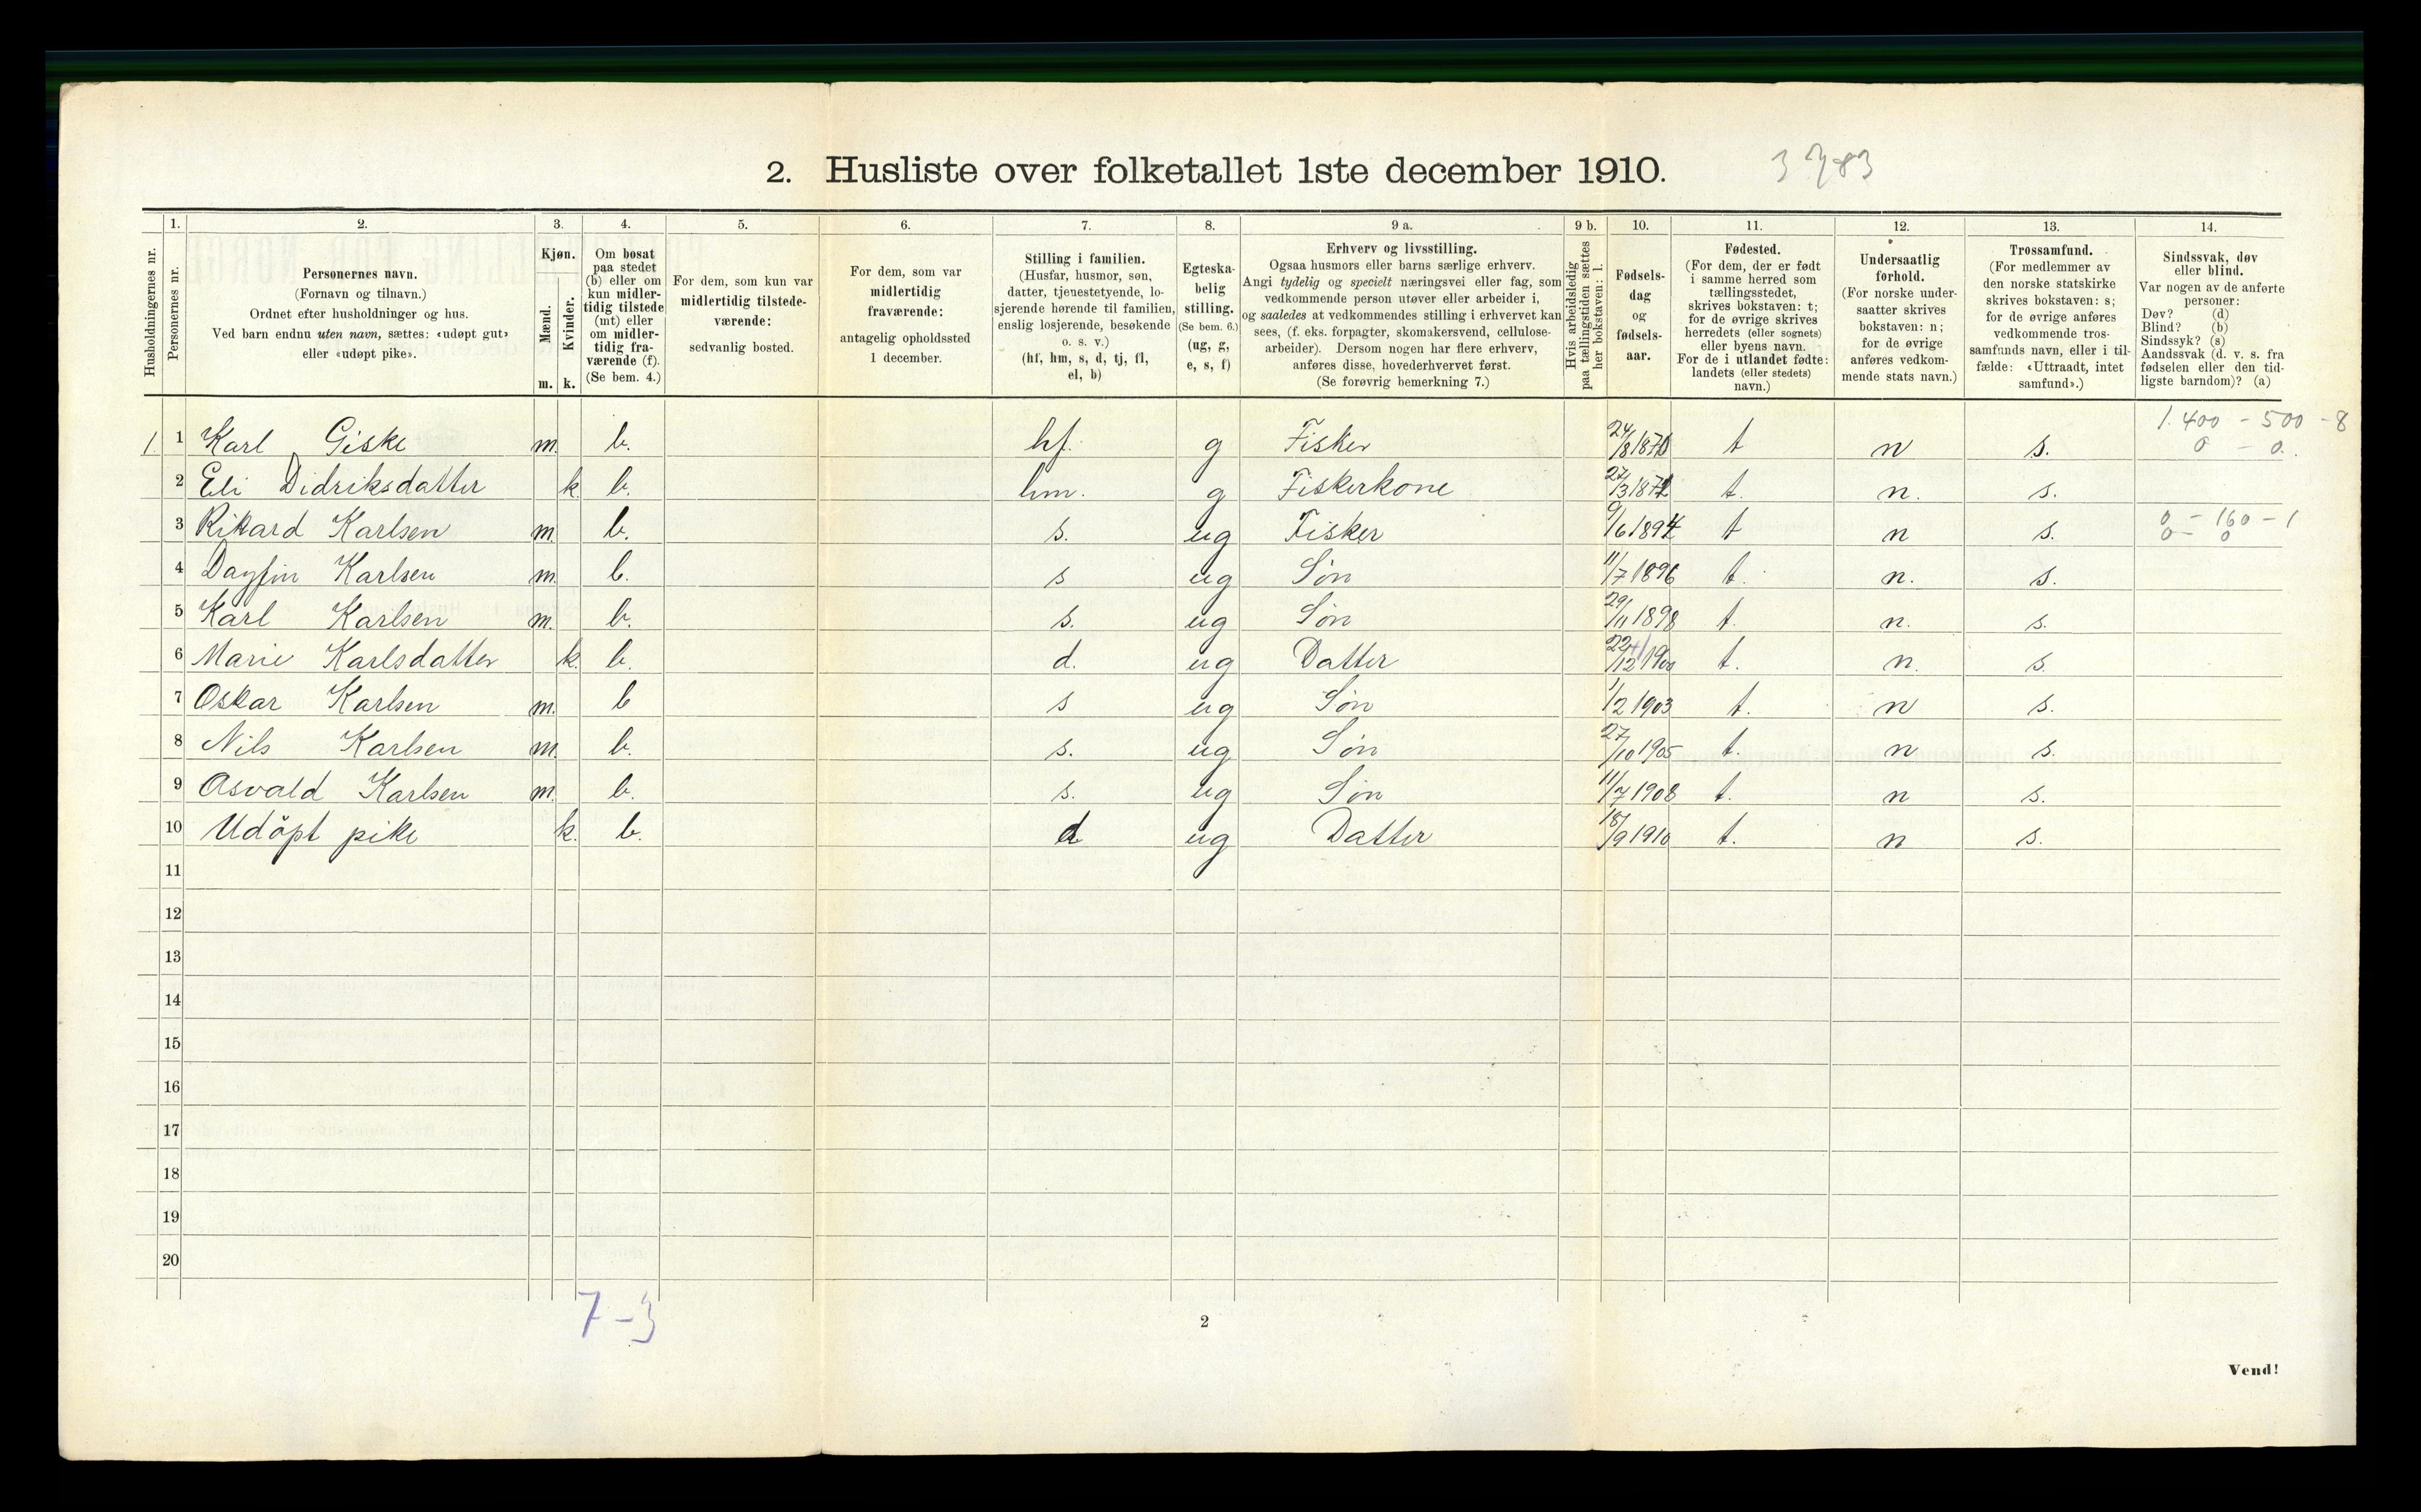 2. Husliste over folketallet 1ste december 1910.
3783
1.
2.
3.
4.
5.
6.
7.
8.
9 a.
9 b.
10.
11.
12.
13.
14.
Husholdningernes nr.
Personernes nr.
Personernes navn.
(Fornavn og tilnavn.)
Ordnet efter husholdninger og hus.
Ved barn endnu uten navn, sættes: «udøpt gut»
eller «udøpt pike».
Kjøn.
Mænd.
Kvinder.
m. k.
Om bosat
paa stedet
(b) eller om
kun midler-
tidig tilstede
(mt) eller
om midler-
tidig fra-
værende (f).
(Se bem. 4.)
For dem, som kun var
midlertidig tilstede-
værende:
sedvanlig bosted.
For dem, som var
midlertidig
fraværende:
antagelig opholdssted
1 december.
Stilling i familien.
(Husfar, husmor, søn,
datter, tjenestetyende, lo-
sjerende hørende til familien,
enslig losjerende, besøkende
o. s. v.)
(hf, hm, s, d, tj, fl,
el, b)
Egteska-
belig
stilling.
(Se bem. 6.)
(ug, g,
e, s, f)
Erhverv og livsstilling.
Ogsaa husmors eller barns særlige erhverv.
Angi tydelig og specielt næringsvei eller fag, som
vedkommende person utøver eller arbeider i,
og saaledes at vedkommendes stilling i erhvervet kan
sees, (f. eks. forpagter, skomakersvend, cellulose-
arbeider). Dersom nogen har flere erhverv,
anføres disse, hovederhvervet først.
(Se forøvrig bemerkning 7.)
Hvis arbeidsledig
paa tællingstiden sættes
her bokstaven: l.
Fødsels-
dag
og
fødsels-
aar.
Fødested.
(For dem, der er født
i samme herred som
tællingsstedet,
skrives bokstaven: t;
for de øvrige skrives
herredets (eller sognets)
eller byens navn.
For de i utlandet fødte:
landets (eller stedets)
navn.)
Undersaatlig
forhold.
(For norske under-
saatter skrives
bokstaven: n;
for de øvrige
anføres vedkom-
mende stats navn.)
Trossamfund.
(For medlemmer av
den norske statskirke
skrives bokstaven: s;
for de øvrige anføres
vedkommende tros-
samfunds navn, eller i til-
fælde: «Uttraadt, intet
samfund».)
Sindssvak, døv
eller blind.
Var nogen av de anførte
personer:
Døv? (d)
Blind? (b)
Sindssyk? (s)
Aandssvak (d. v. s. fra
fødselen eller den tid-
ligste barndom)? (a)
1. 1 Karl Giske m. b. hf. g Fisker 24/8 1870 t n s. 1.400 - 500 - 8
0 - 0.
2 Eli Didriksdatter k b. hm. g Fiskerkone 27/3 1872 t. n. s.
3 Rikard Karlsen m. b. s. ug Fisker 9/6 1894 t n s. 0 - 160 - 1
0 - 0
4 Dagfin Karlsen m. b. s ug Søn 11/7 1896 t. n. s.
5 Karl Karlsen m. b. s. ug Søn 29/11 1898 t. n. s.
6 Marie Karlsdatter k. b. d. ug Datter 22/12 1900 t. n. s.
7 Oskar Karlsen m. b s ug Søn 1/2 1903 t. n s.
8 Nils Karlsen m. b. s. ug Søn 27/10 1905 t. n s.
9 Asvald Karlsen m. b. s. ug Søn 11/7 1908 t. n s.
10 Udöpt pike k. b. d ug Datter 18/9 1910 t. n s.
11
12
13
14
15
16
17
18
19
20
7-3
2
Vend!